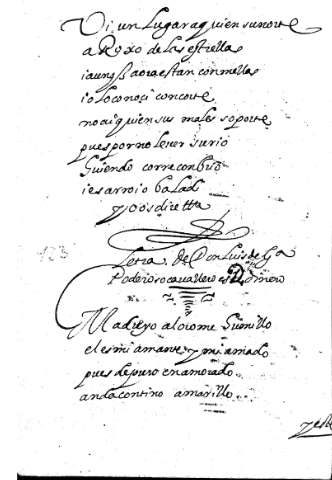 Vi un lugar a quien su norte
a Rojo de las estrellas
i aunq aora estan con mellas
io lo conoçi con corte
no ai quien sus males soporte
pues por no le ver su rio
huiendo corre con brio
i es arroio balad
yo os diré
123
Letra. de Don Luis de Ga
Poderoso cavallero es D. Dinero
Madre yo al oro me humillo
el es mi amante y mi amado
pues de puro enamorado
anda contino amarillo